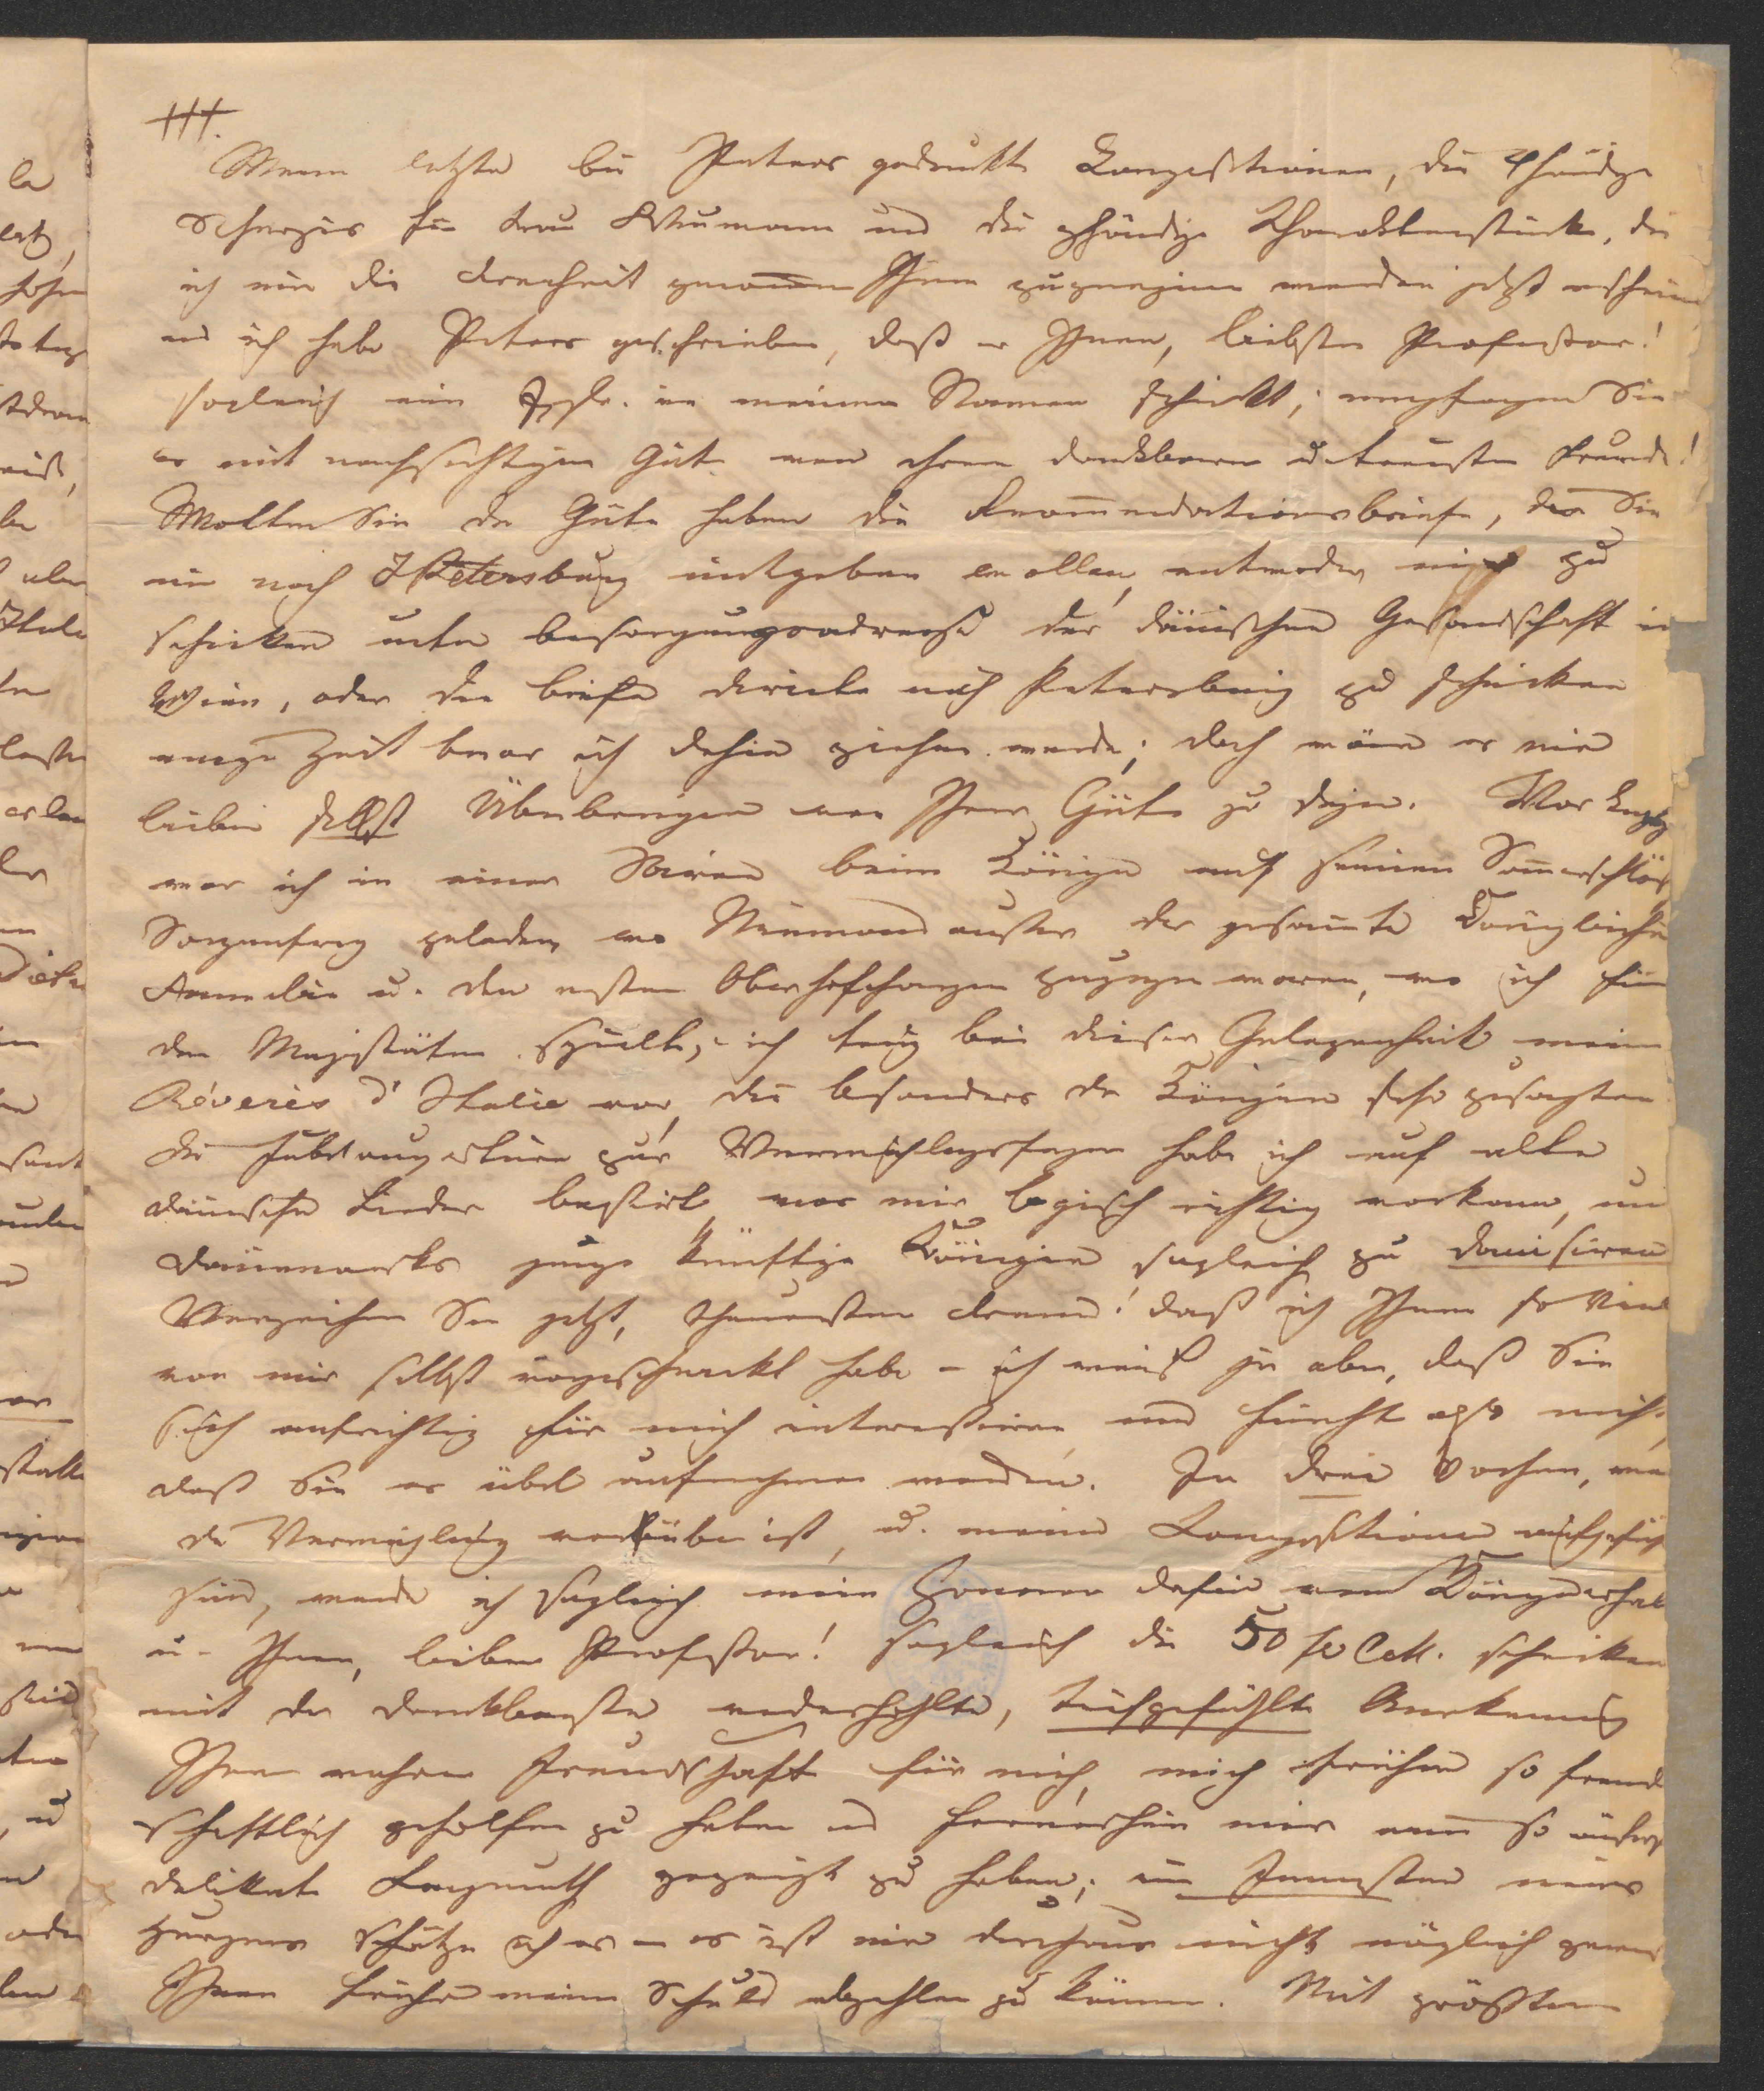 III.
Meine letzte bei Peters gedruckte Compositionen, die 4händige
Scherzos für Frau Schumann und die 2händige Charakterstücke, die
ich mir die Freiheit genommen Ihnen zuzueignen werden jetzt erscheinen
und ich habe Peters geschrieben, daß er Ihnen, liebster Professor!
sogleich ein Expl. in meinem Namen schickt; empfangen Sie
es mit nachsichtiger Güte von Ihrem dankbaren u. treusten Freunde!
Wollten Sie die Güte haben die Recommendationsbriefe, die Sie
mir nach St Petersburg mitgeben wollen, entweder mir zu
schicken unter besorgungsadresse der dänischen Gesandschaft in
Wien, oder die briefe directe nach Petersburg zu schicken
einige Zeit bevor ich dahin ziehen werde; doch wäre es mir
lieber selbst Überbringer von Ihrer Güte zu sein. Vor
war ich in einer Soiree beim Könige auf seinem Sommerschloß
Sorgenfrey geladen wo Niemand außer der gesammte Königliche
Familie u. den ersten Oberhofchargen zugegen waren, wo ich für
den Majestäten spielte; ich trug bei dieser Gelegenheit meine
Réveries d'Italie vor, die besonders der Königin sehr zusagten
Die Jubelouvertüre zur Vermählungsfeyer habe ich auf alte
dänische Lieder basirt was mir logisch richtig vorkam, um
Dänemarks junge künftige Königin sogleich zu danisiren
Verzeihen Sie jetzt, theuerster Freund! daß ich Ihnen so viel
von mir selbst vorgeschnackt habe – ich weiß ja aber, daß Sie
sich aufrichtig für mich interessiren und fürchte also nicht,
daß Sie es übel aufnehmen werden. In drei Wochen, wenn
die Vermählung vorüber ist, u. meine Compositionen aufgeführt
sind, werde ich sogleich mein Honorar dafür vom Könige erhalten
u. Ihnen, lieber Professor! sogleich die 50 schicken
mit der dankbarsten wiederhohlten, tiefgefühlte Anerkennung
Ihrer wahren Freundschaft für mich, mich früher so freund
schaftlich geholfen zu haben und fernerhin mir eine so äußerst
delikate Langmuth gezeigt zu haben; im Innersten meines
Herzens schätze ich es – es ist mir durchaus nicht möglich gewesen
Ihnen früher meine Schuld abzahlen zu können. Mit größtem